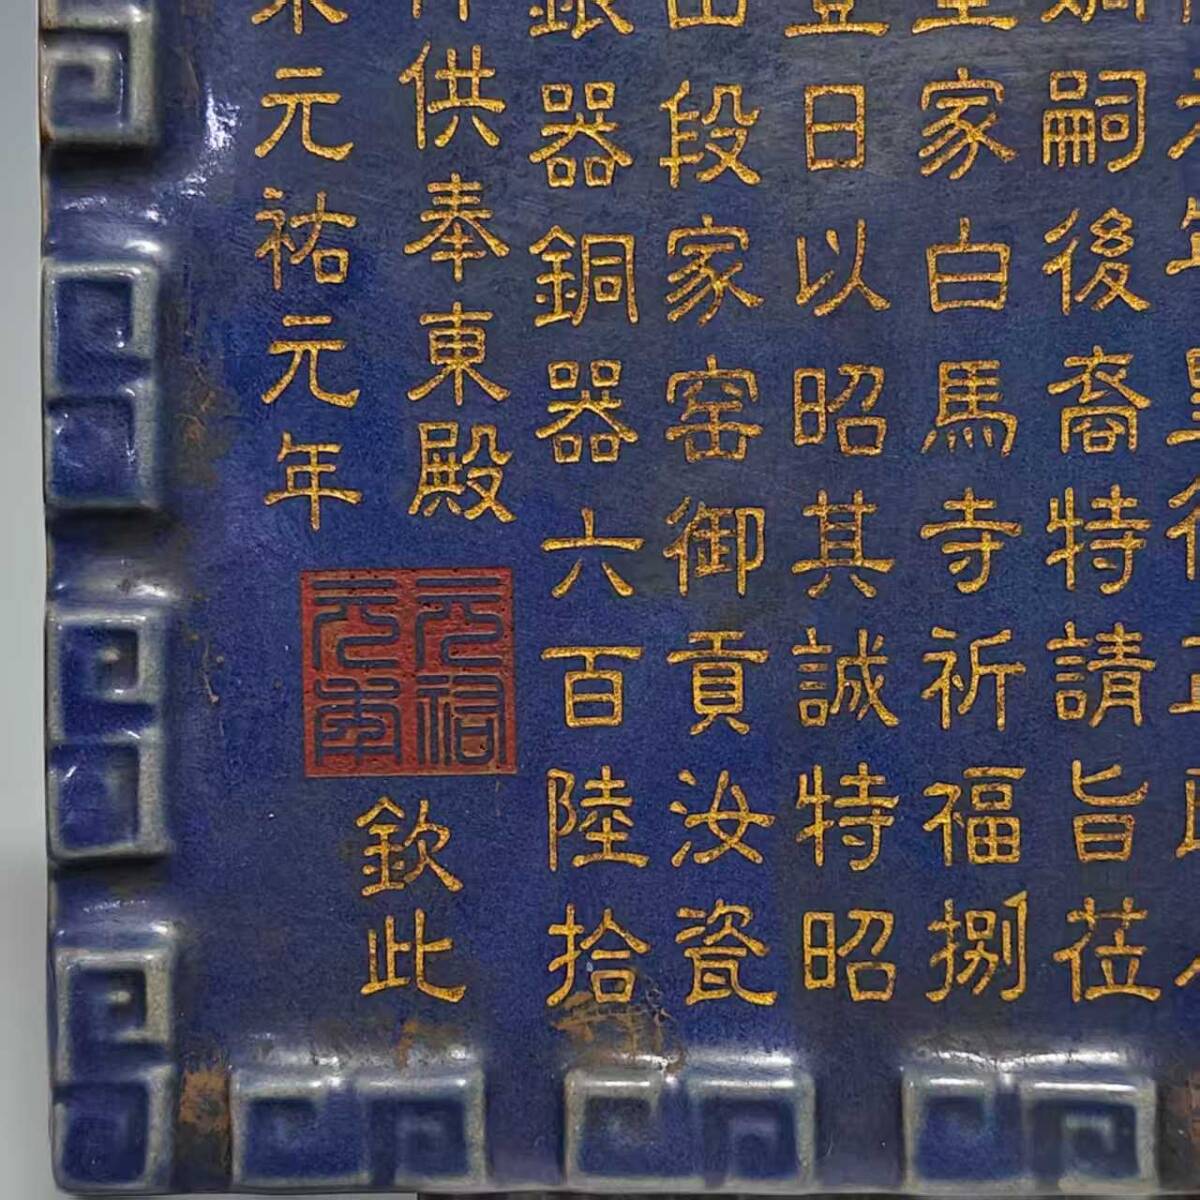 嗣後裔特請旨莅
家白馬寺祈福捌
日以昭其誠特昭
段家窑御貢汝瓷
銀器銅器六百陸拾
供奉東殿
元祐元年
欽此